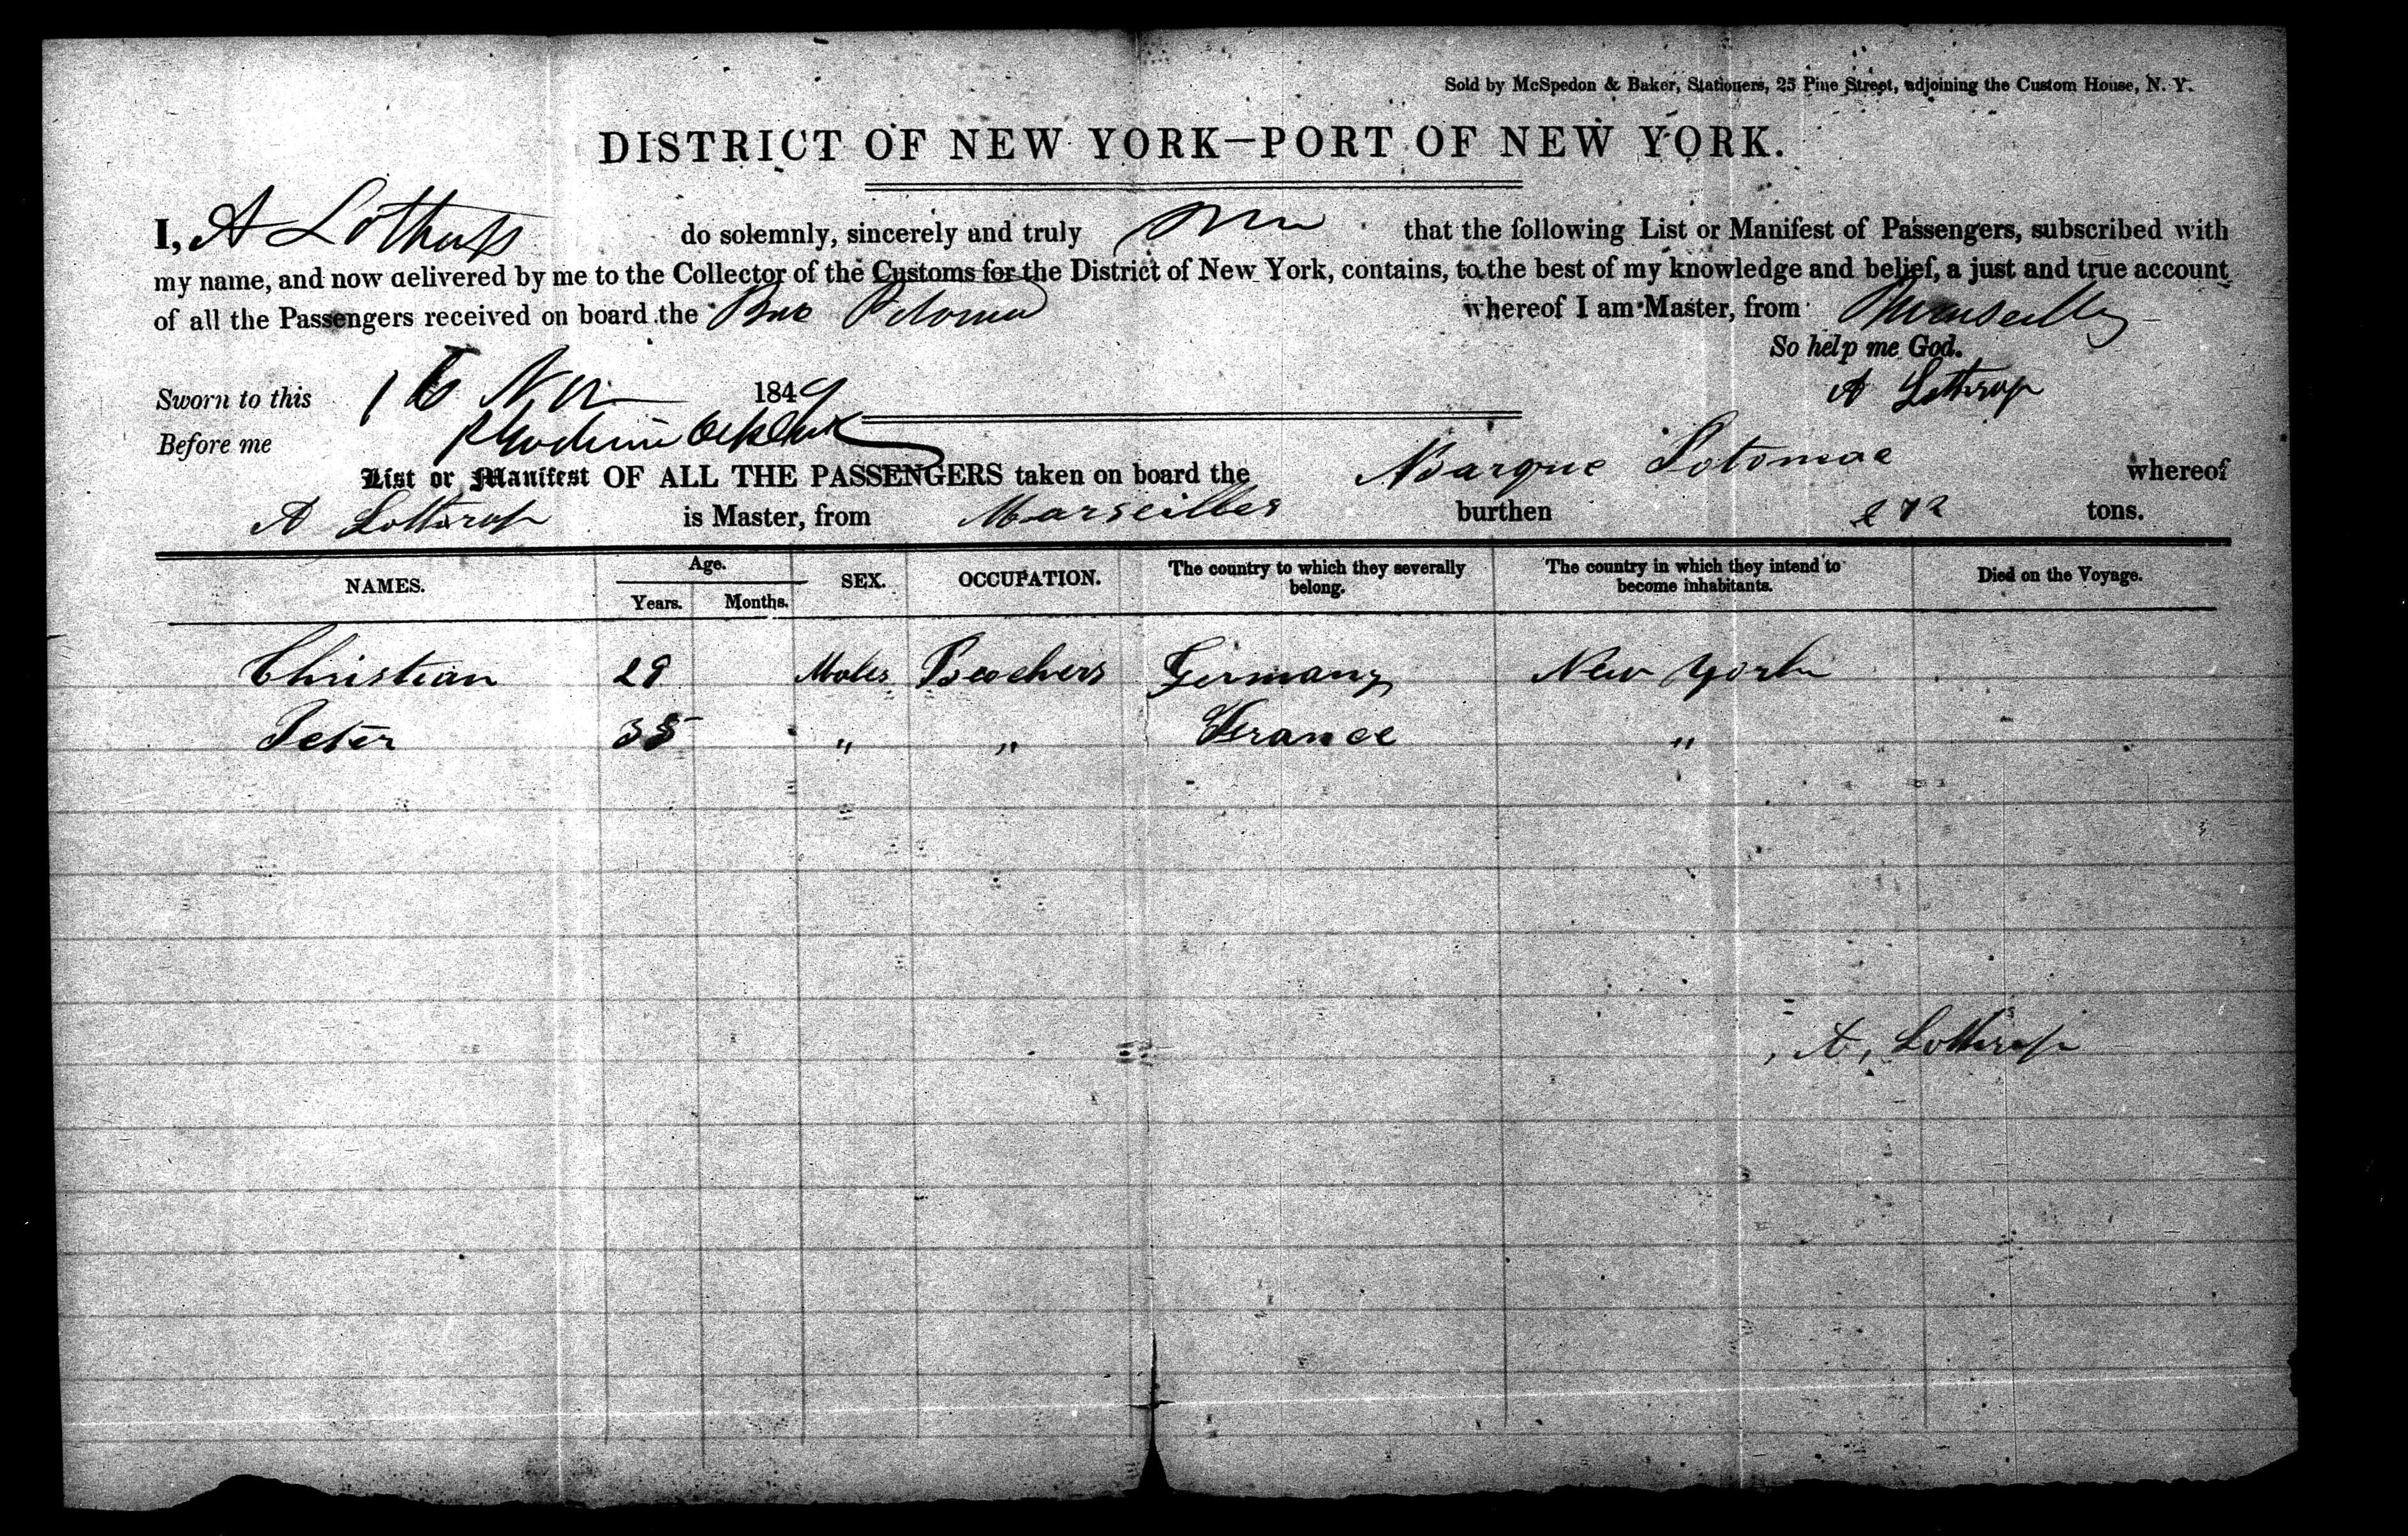 Sold by McSpedon & Baker, Stationers, 25 Pine Street, adjoining the Custom House, N. Y.
DISTRICT OF NEW YORK—PORT OF NEW YORK.
I, A Lothrop do solemnly, sincerely and truly that the following List or Manifest of Passengers, subscribed with
my name, and now delivered by me to the Collector of the Customs for the District of New York, contains, to the best of my knowledge and belief, a just and true account
of all the Passengers received on board the Bark Potomac whereof I am Master, from Marseilles
So help me God.
Sworn to this 16 Nov 1849 A Lothrop
Before me
List or Manifest OF ALL THE PASSENGERS taken on board the Barque Potomac whereof
A Lothrop is Master, from Marseilles burthen 272 tons.
NAMES. Age. Years. Months. SEX. OCCUPATION. The country to which they severally belong. The country in which they intend to become inhabitants. Died on the Voyage.
Christian 29 Males Germany New York
Peter 35 " " France "
A, Lothrop